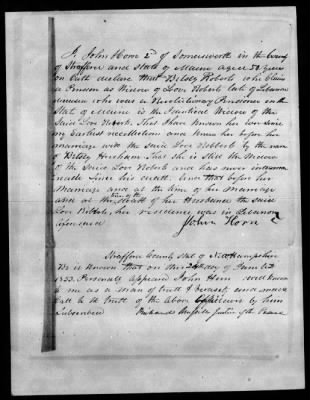 I, John Horn 2d of Somersworth in the County
of Strafford and State of Maine aged 50 years
on Oath declare that Betsey Roberts who claims
a Pension as Widow of Love Roberts late of Lebanon
deceased who was a Revolutionary Pensioner in the
State of Maine is the Identical Widow of the
Said Love Roberts. That I have known her ever since
my Earliest recollection and knew her before her
marriage with the said Love Roberts by the name
of Betsey Hersham that she is still the Widow
of the Said Love Roberts and has never intermar
ried since his death. And that before her
Marriage and at the time of her marriage
and at the time of the death of her Husband the said
Love Roberts, her residence was in Lebanon
aforesaid
John Horn 2
Strafford County State of New Hampshire
Be it known that on this day of June AD
1853. Personally appeared John Horn well known
to me as a man of truth & veracity and made
Oath to the truth of the above affidavit by him
Subscribed
Justice of the Peace